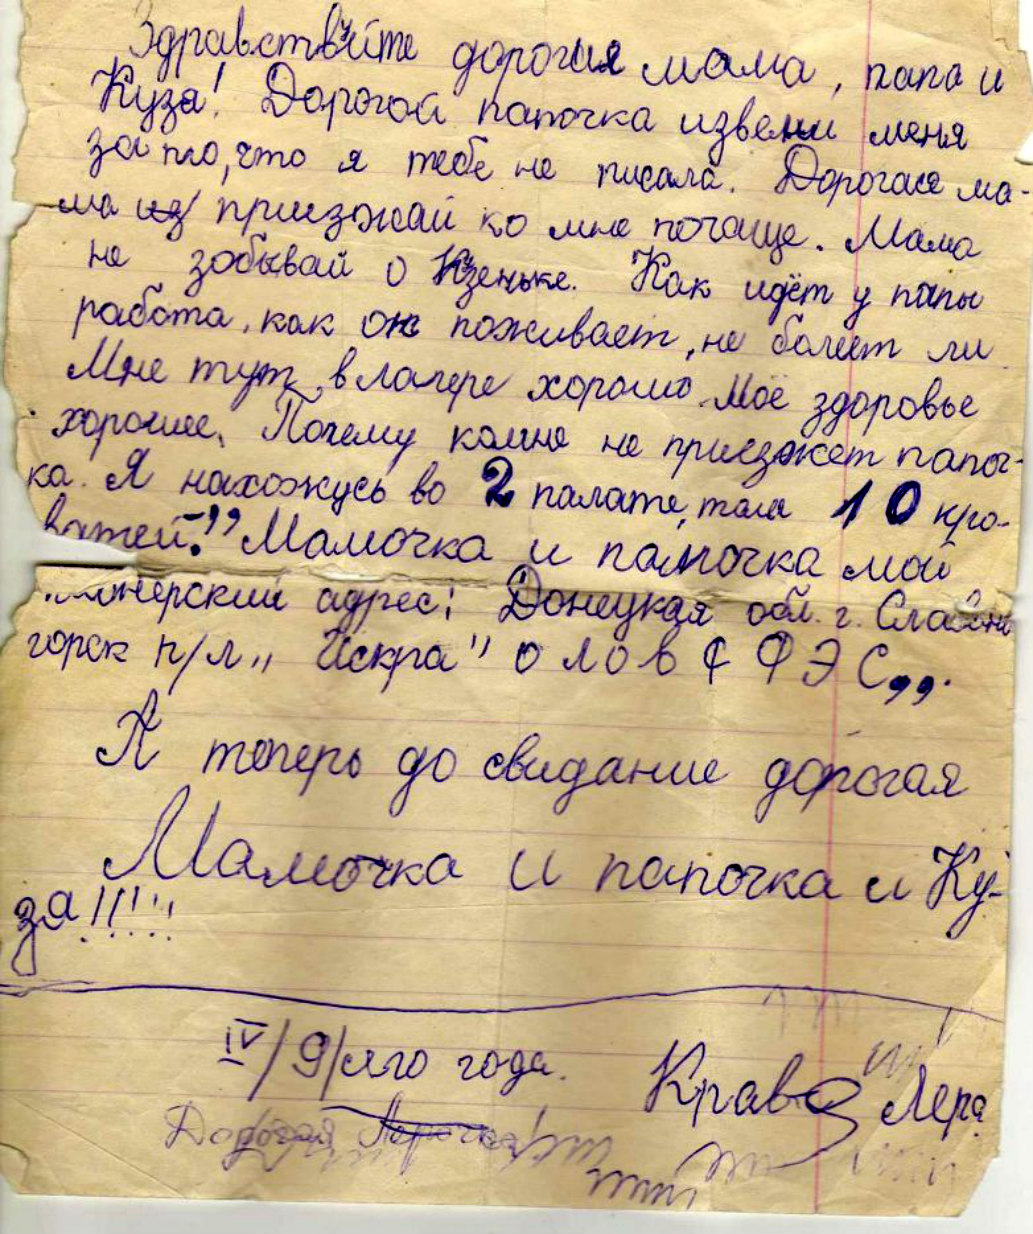 Здравствуйте дорогия мама, папа и
Кузя! Дорогой папочка извени меня
за то, что я тебе не писала. Дорогая ма-
ма из приезжай ко мне почаще. Мама
не зобывай о Кузеньке. Как идёт у папы
работа, как он поживает, не болеет ли
Мне тут в лагере хорошо. Моё здоровье
хорошее. Почему комне не приезжет папоч-
ка. Я нахожусь во 2 палате, там 10 кро-
ватей." Мамочка и папочка мой
пионерский адрес: Донецкая обл. г. Славяно
горск п/л „ Искра" о л о в ФЭС„.
А теперь до свидание дорогая
Мамочка и папочка и Ку-
зя!!!!!
IV/9/ яго года. Крав Лера
Дорогая Лерочка!